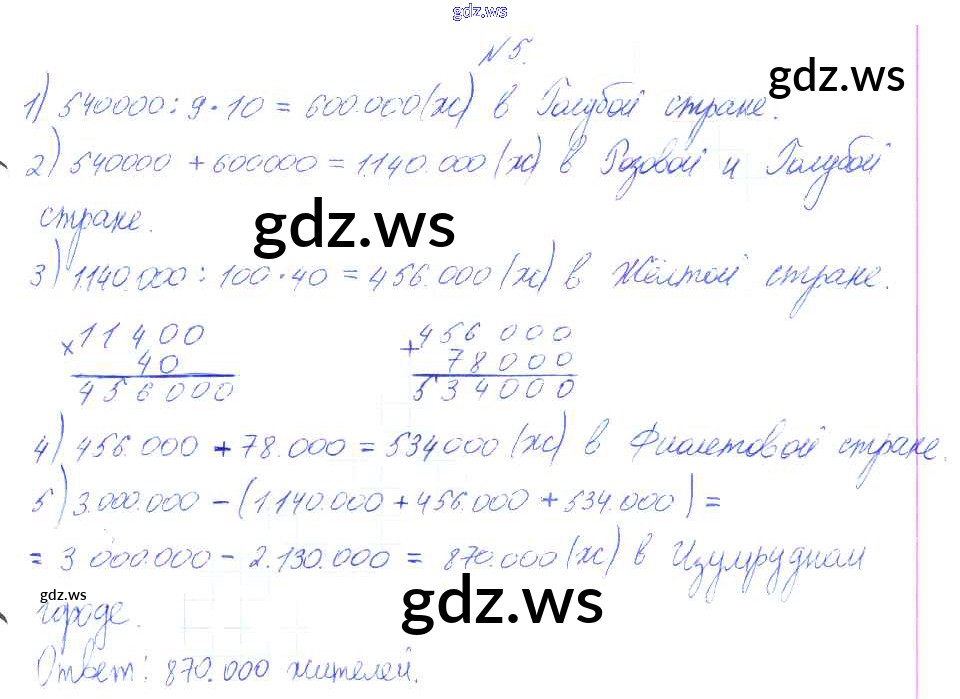 gdz.ws
№ 5.
gdz.ws
1) 540000 : 9 · 10 = 600.000 (ж) в Голубой стране.
2) 540000 + 600000 = 1140.000 (ж) в Розовой и Голубой
стране.
gdz.ws
3) 1140.000 : 100 · 40 = 456.000 (ж) в Жёлтой стране.
× 11400 + 456 000
40 78000
456000 534000
4) 456.000 + 78.000 = 534000 (ж) в Фиолетовой стране.
5) 3.000.000 - (1.140.000 + 456.000 + 534.000) =
= 3 000.000 - 2.130.000 = 870.000 (ж) в Изумрудном
gdz.ws
gdz.ws
городе.
Ответ: 870.000 жителей.